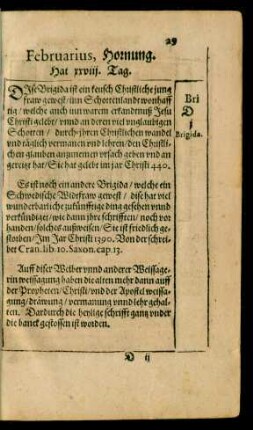 29
Februarius, Hornung.
Hat xxviij. Tag.
DIse Brigida ist ein keusch Christliche jung
fraw gewest / inn Schottenlandt wonhaff
tig / welche auch inn warem erkandtnuß Jesu
Christi gelebt / vnnd an deren viel vnglaubigen
Schotten / durch jhren Christlichen wandel
vnd täglich vermanen vnd lehren / den Christli-
chen glauben anzunemen vrsach geben vnd an
gereitzt hat / Sie hat gelebt im jar Christi 440.
Es ist noch ein andere Brigida / welche ein
Schwedische Widfraw gewest / dise hat viel
wunderbarliche zukünfftige ding gesehen vnnd
verkündiget / wie dann jhre schrifften / noch vor
handen / solches außweisen / Sie ist friedlich ge-
storben / Im Jar Christi 1390. Von der schrei-
bet Cran. lib. 10. Saxon. cap. 13.
Auff diser Weiber vnnd anderer Weissage-
rin weissagung haben die alten mehr dann auff
der Propheten / Christi / vnd der Apostel weissa-
gung / dräwung / vermanung vnnd lehr gehal-
ten. Dardurch die heylige schrifft gantz vnder
die banck gestossen ist worden.
Bri
D
1
Brigida.
D ij